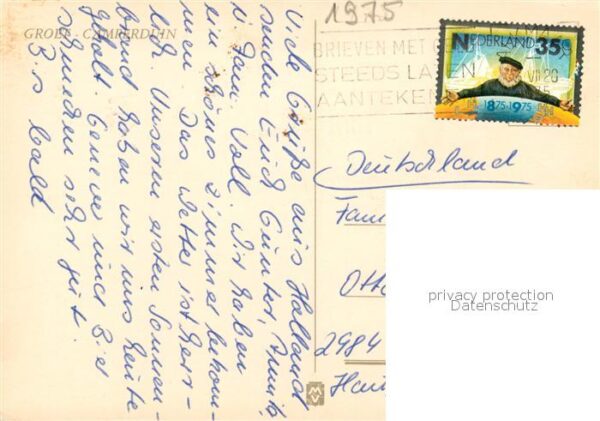 1975
GROET - CAMPERDUIN
BRIEVEN MET
STEEDS LA
AANTEKEN
NEDERLAND 35c
1875-1975
VII 20
Viele Grüße aus Holland
senden Euch Günter,
u. Fam. Voll. Wir haben
ein schönes Zimmer bekom-
men. Das Wetter ist herr-
lich. Unseren ersten Sonnen-
brand haben wir uns heute
geholt. Genever und Bier
schmecken sehr gut.
Bis bald
Deutschland
Fam
Otto
2984
Hau
privacy protection
Datenschutz